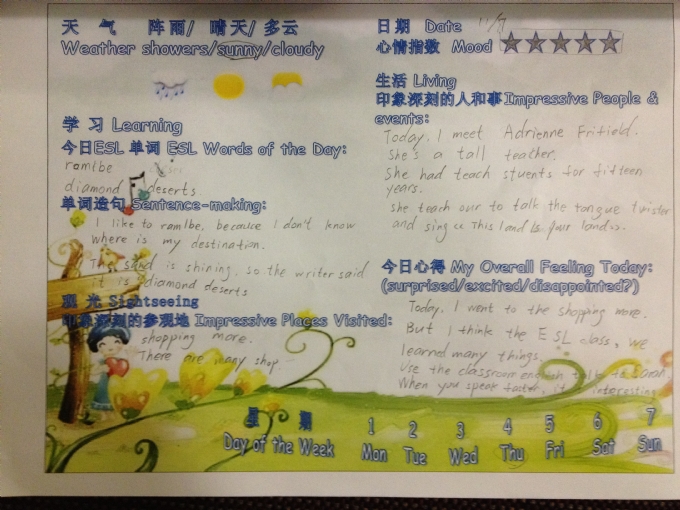 天 气 阵雨/ 晴天/ 多云
Weather showers/sunny/cloudy
学 习 Learning
今日ESL 单词 ESL Words of the Day:
ramlbe
diamond deserts
单词造句 Sentence-making:
I like to ramlbe, because I don't know
where is my destination.
The sand is shining, so the writer said
it is diamond deserts
观 光 Sightseeing
印象深刻的参观地 Impressive Places Visited:
shopping more.
There are many shop
日期 Date 11/7
心情指数 Mood
生活 Living
印象深刻的人和事 Impressive People &
events:
Today, I meet Adrienne
She's a tall teather.
She had teach stuents for fifteen
years.
She teach our to talk the tongue twister
and sing << This land is your land>>.
今日心得 My Overall Feeling Today:
(surprised/excited/disappointed?)
Today, I went to the shopping more.
But I think the ESL class, we
learned many things.
Use the classroom english to
When you speak faster, it interesting
星 期
Day of the Week
1 2 3 4 5 6 7
Mon Tue Wed Thu Fri Sat Sun